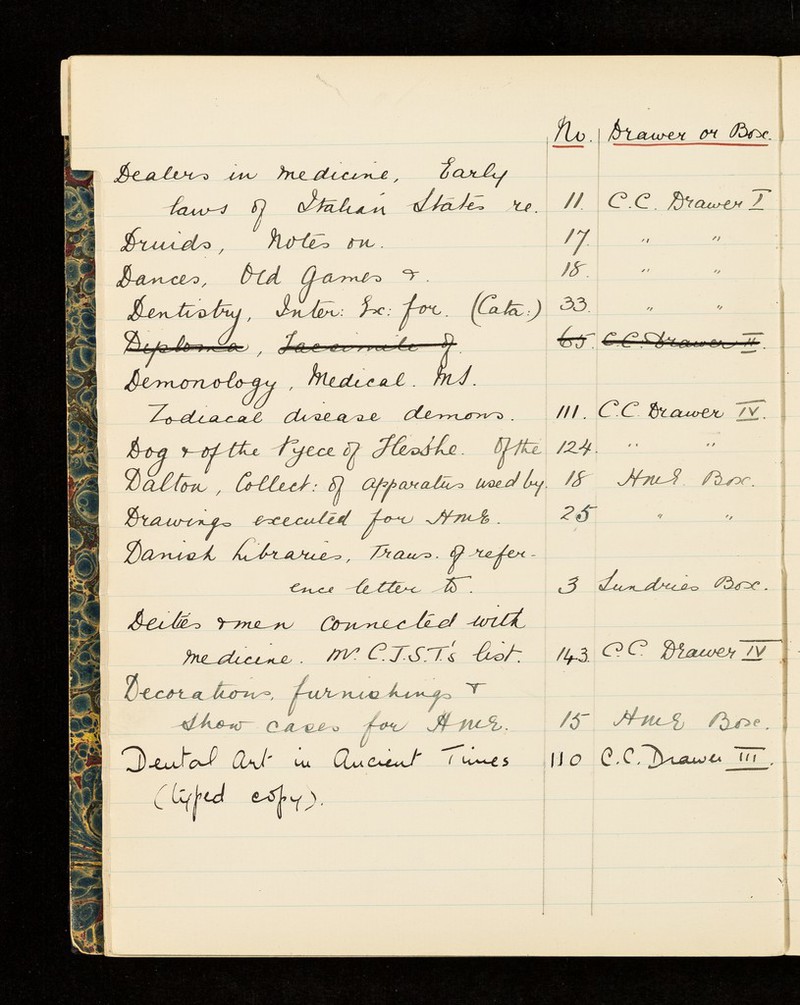 No. Drawer or Box.
Dealers in Medicine, Early
laws of Italian States re. 11. C.C. Drawer I
Druids, Notes on. 17. " "
Dances, Old Games &. 18. " "
Dentistry, Inter: Ex: for. (Cata:) 33. " "
Diploma, Facsimile of. 65. C.C. Drawer II.
Demonology, Medical. MS.
Zodiacal disease demons. 111. C.C. Drawer IV.
Dog & of the of the 124. " "
Dalton, Collect: of apparatus used by. 18 HME Box.
Drawings executed for HME. 25 " "
Danish Libraries, Trans. of refer-
ence letter to. 3 Sundries Box.
Deities & men connected with
medicine. Mr. C.J.S.T's list. 143. C.C. Drawer IV
Decorations, furnishings &
show cases for HME. 15 HME Box.
Dental Art in Ancient Times 110 C.C. Drawer III.
(typed copy).